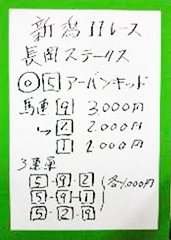 新潟11レース
長岡ステークス
◎ 5 アーバンキッド
馬連 9 3,000円
↳ 2 2,000円
1 2,000円
3連単
5-9-2
5-9-1 各1,000円
5-2-9